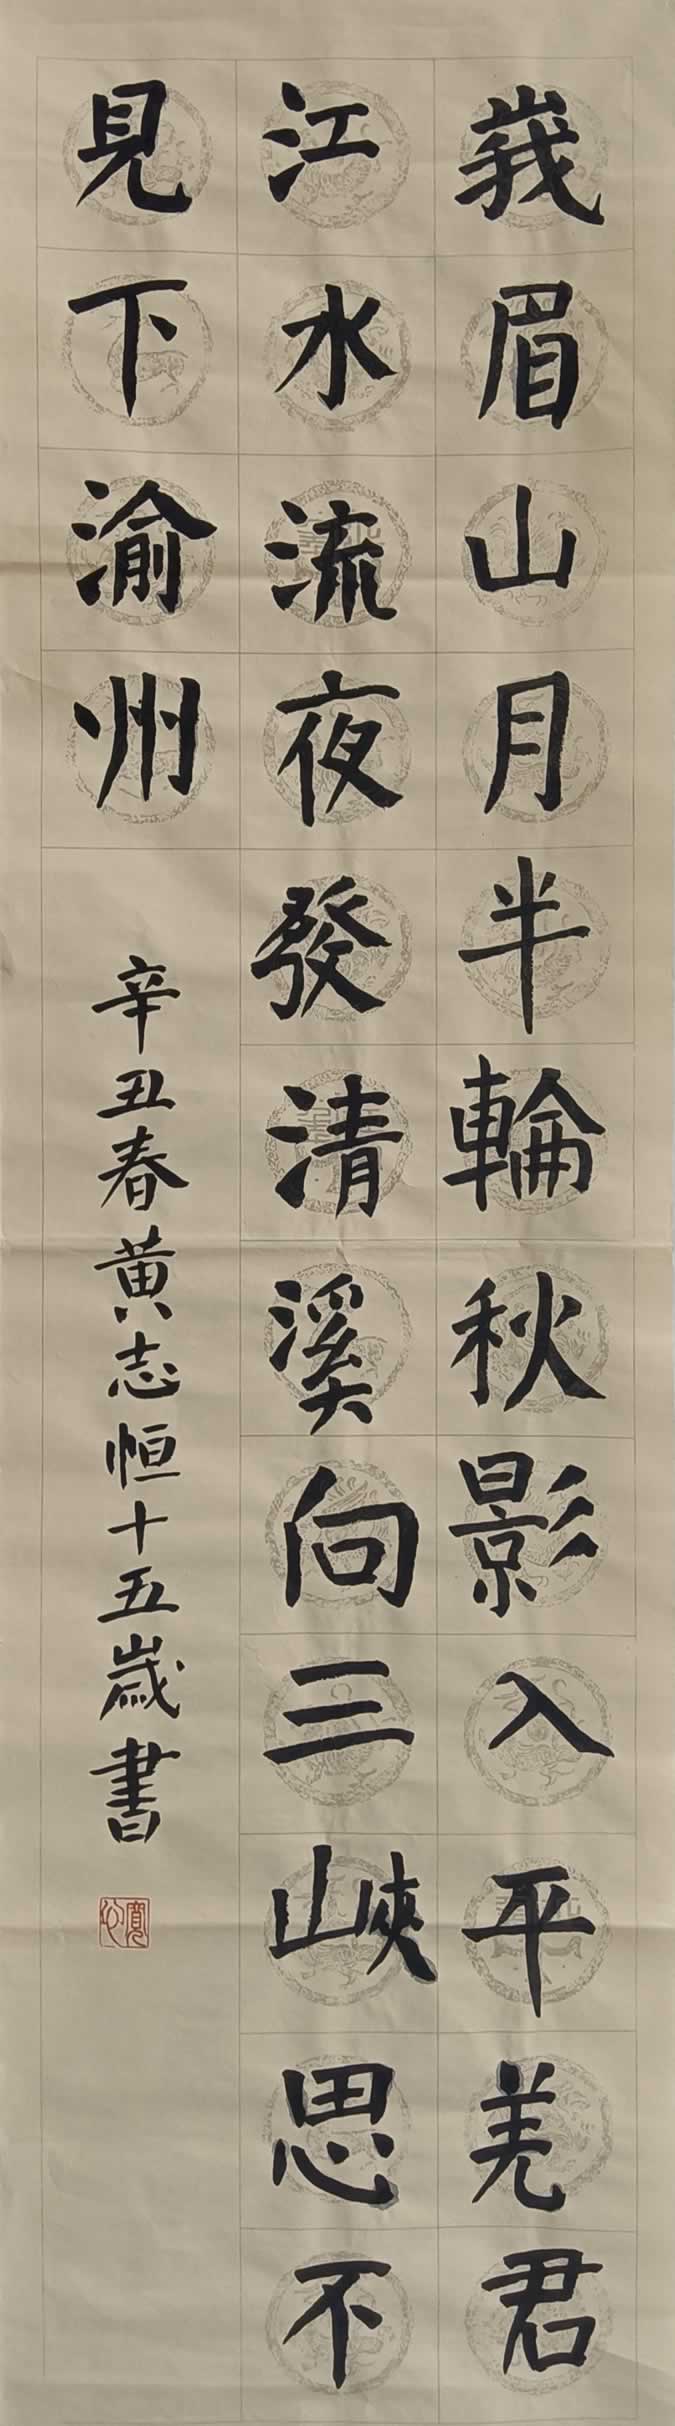 峩眉山月半輪秋影入平羌君
江水流夜發清溪向三峽思不
見下渝州
辛丑春黄志恒十五歲書